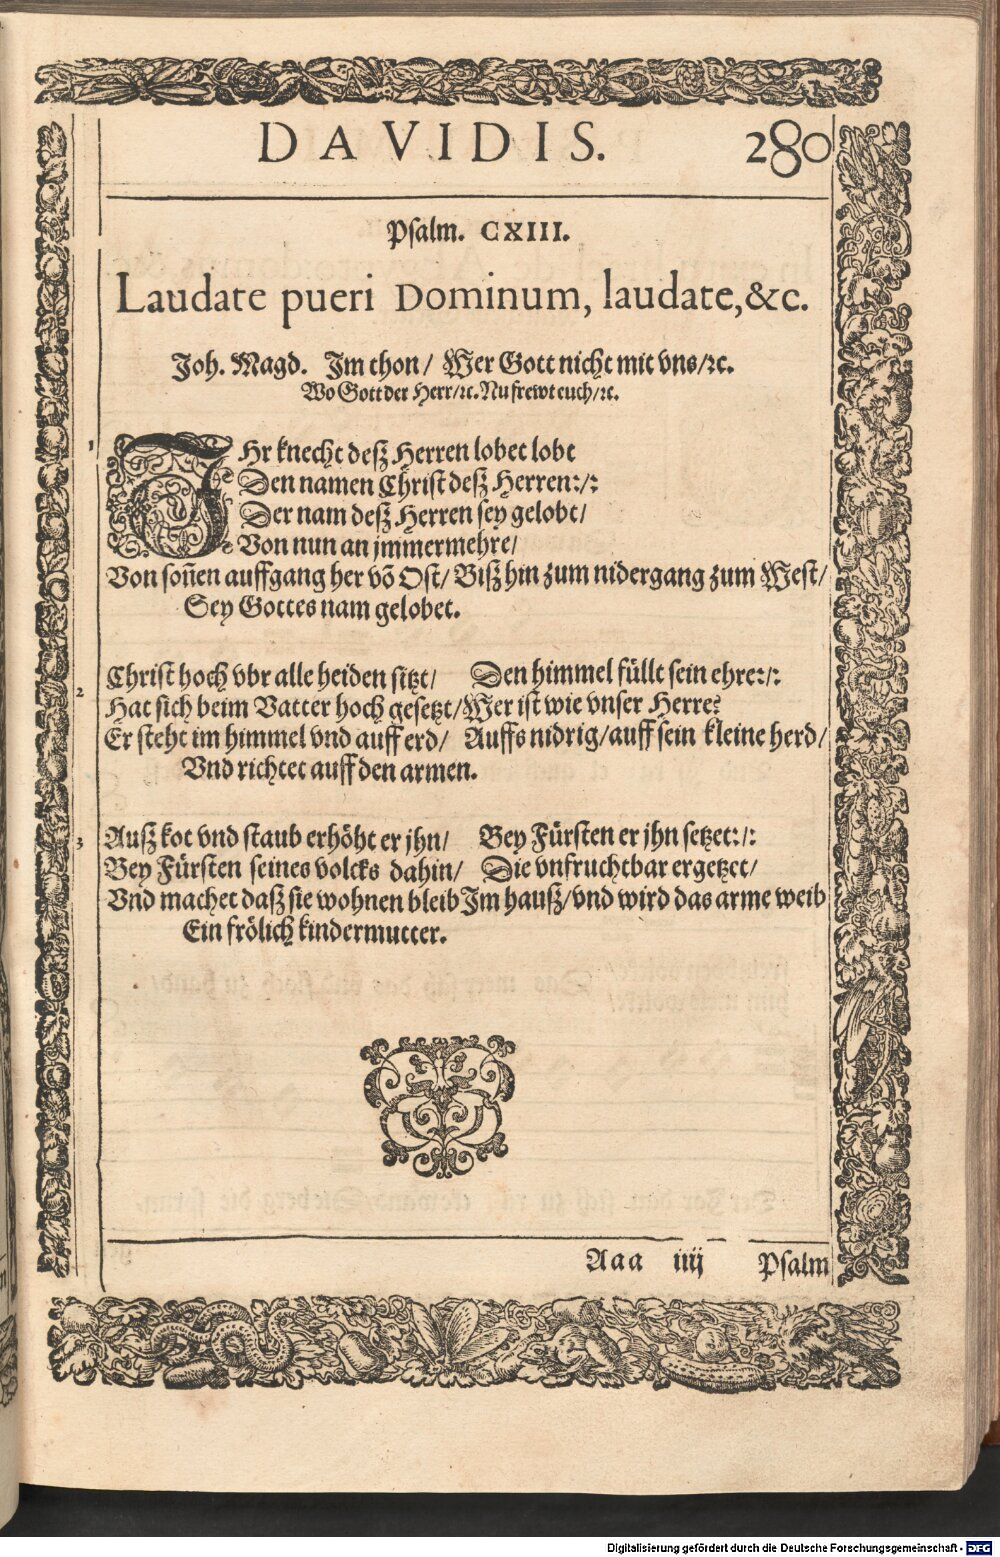 DAVIDIS. 280
Psalm. CXIII.
Laudate pueri Dominum, laudate, &c.
Joh. Magd. Im thon/ Wer Gott nicht mit vns/ꝛc.
Wo Gott der Herr/ꝛc. Nu frewt euch/ꝛc.
1 IHr knecht deß Herren lobet lobt
Den namen Christ deß Herren:/:
Der nam deß Herren sey gelobt/
Von nun an jmmermehre/
Von soñen auffgang her võ Ost/ Biß hin zum nidergang zum West/
Sey Gottes nam gelobet.
2 Christ hoch vbr alle heiden sitzt/ Den himmel füllt sein ehre:/:
Hat sich beim Vatter hoch gesetzt/ Wer ist wie vnser Herre?
Er steht im himmel vnd auff erd/ Auffs nidrig/ auff sein kleine herd/
Vnd richtet auff den armen.
3 Auß kot vnd staub erhöht er jhn/ Bey Fürsten er jhn setzet:/:
Bey Fürsten seines volcks dahin/ Die vnfruchtbar ergetzet/
Vnd machet daß sie wohnen bleib Im hauß/ vnd wird das arme weib
Ein frölich kindermutter.
Aaa iiij Psalm
Digitalisierung gefördert durch die Deutsche Forschungsgemeinschaft - DFG